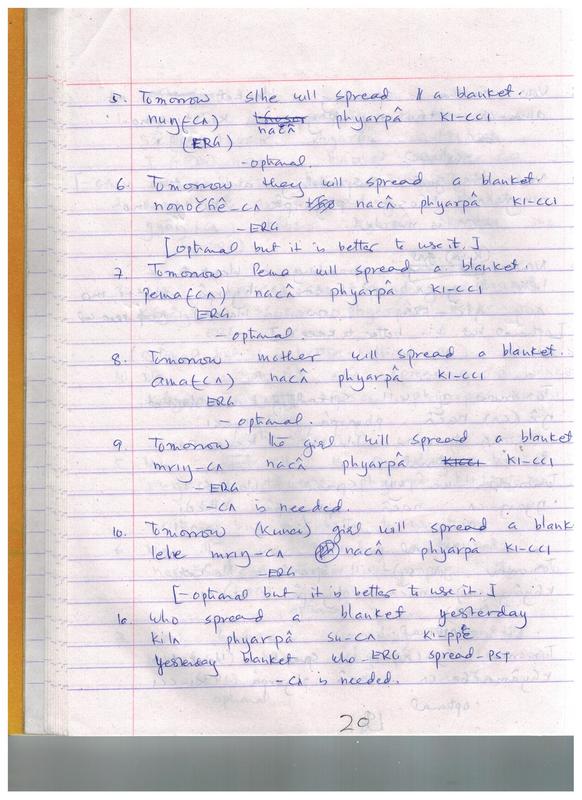 5. Tomorrow s/he will spread a blanket.
nuŋ(-cʌ) nacâ phyarpâ KI-CCI
(ERG)
- optional.
6. Tomorrow they will spread a blanket.
-cʌ nacâ phyarpâ KI-CCI
- ERG
[optional but it is better to use it.]
7. Tomorrow Pema will spread a blanket.
Pema(-cʌ) nacâ phyarpâ KI-CCI
ERG
- optional.
8. Tomorrow mother will spread a blanket.
ama(-cʌ) nacâ phyarpâ KI-CCI
ERG
- optional.
9. Tomorrow the girl will spread a blanket
mrıŋ-cʌ nacâ phyarpâ KI-CCI
- ERG
-cʌ is needed.
10. Tomorrow (Kunai) girl will spread a blank
lehe mrıŋ-cʌ nacâ phyarpâ KI-CCI
-ERG
[- optional but it is better to use it.]
who spread a blanket yesterday
phyarpâ su-cʌ
yesterday blanket who-ERG spread-PST
-cʌ is needed.
20